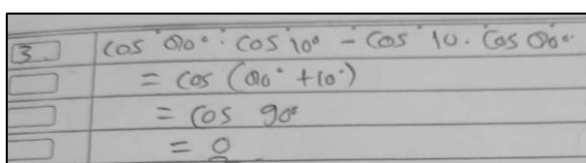 3. cos 80°. cos 10° - cos 10. cos 80°
= cos (80° + 10°)
= cos 90°
= 0